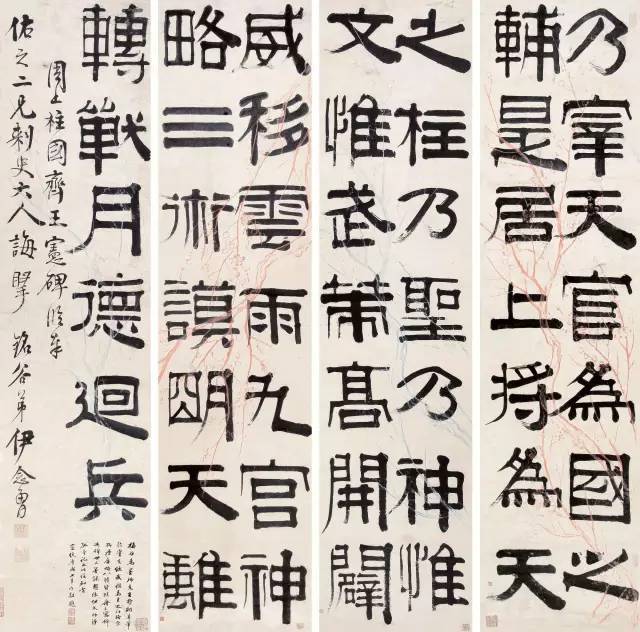 乃宰天官為國之
輔是居上將為天
之柱乃聖乃神惟
文惟武策高開闢
威移雲雨九宮神
略三術謨明天離
轉戰月德迴兵
周上柱國齊王憲碑臨奉
佑之二兄刺史大人誨 谷弟伊念曾